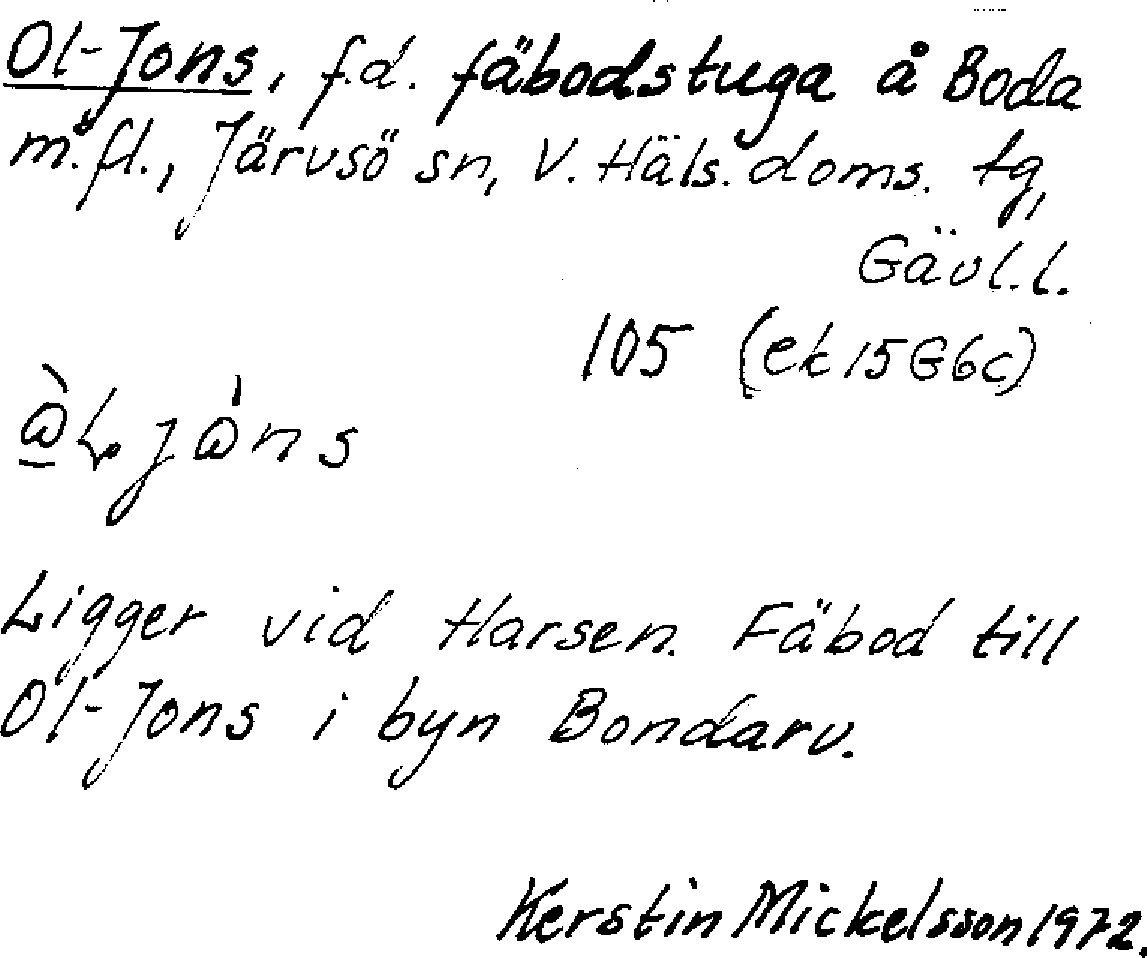 Ol-Jons, f.d. fäbodstuga å Boda
m.fl., Järvsö sn, V. Häls. doms. tg,
Gävl.l.
105 (ek 15G6c)
Ligger vid Harsen. Fäbod till
Ol-Jons i byn Bondarv.
Kerstin Mickelsson 1972.